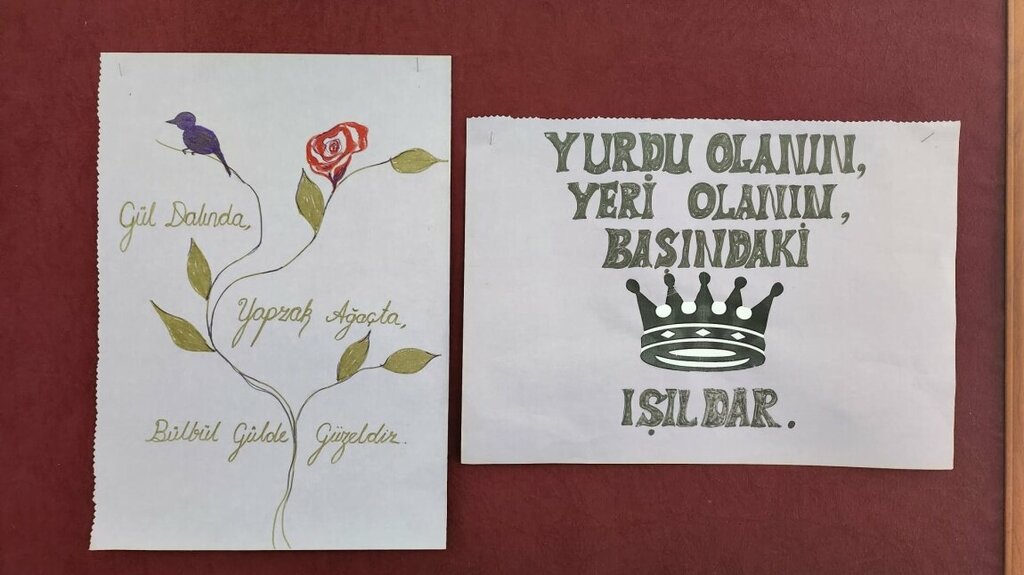 Gül Dalında,
Yaprak Ağaçta,
Bülbül Gülde Güzeldir.
YURDU OLANIN,
YERİ OLANIN,
BAŞINDAKİ
IŞILDAR.